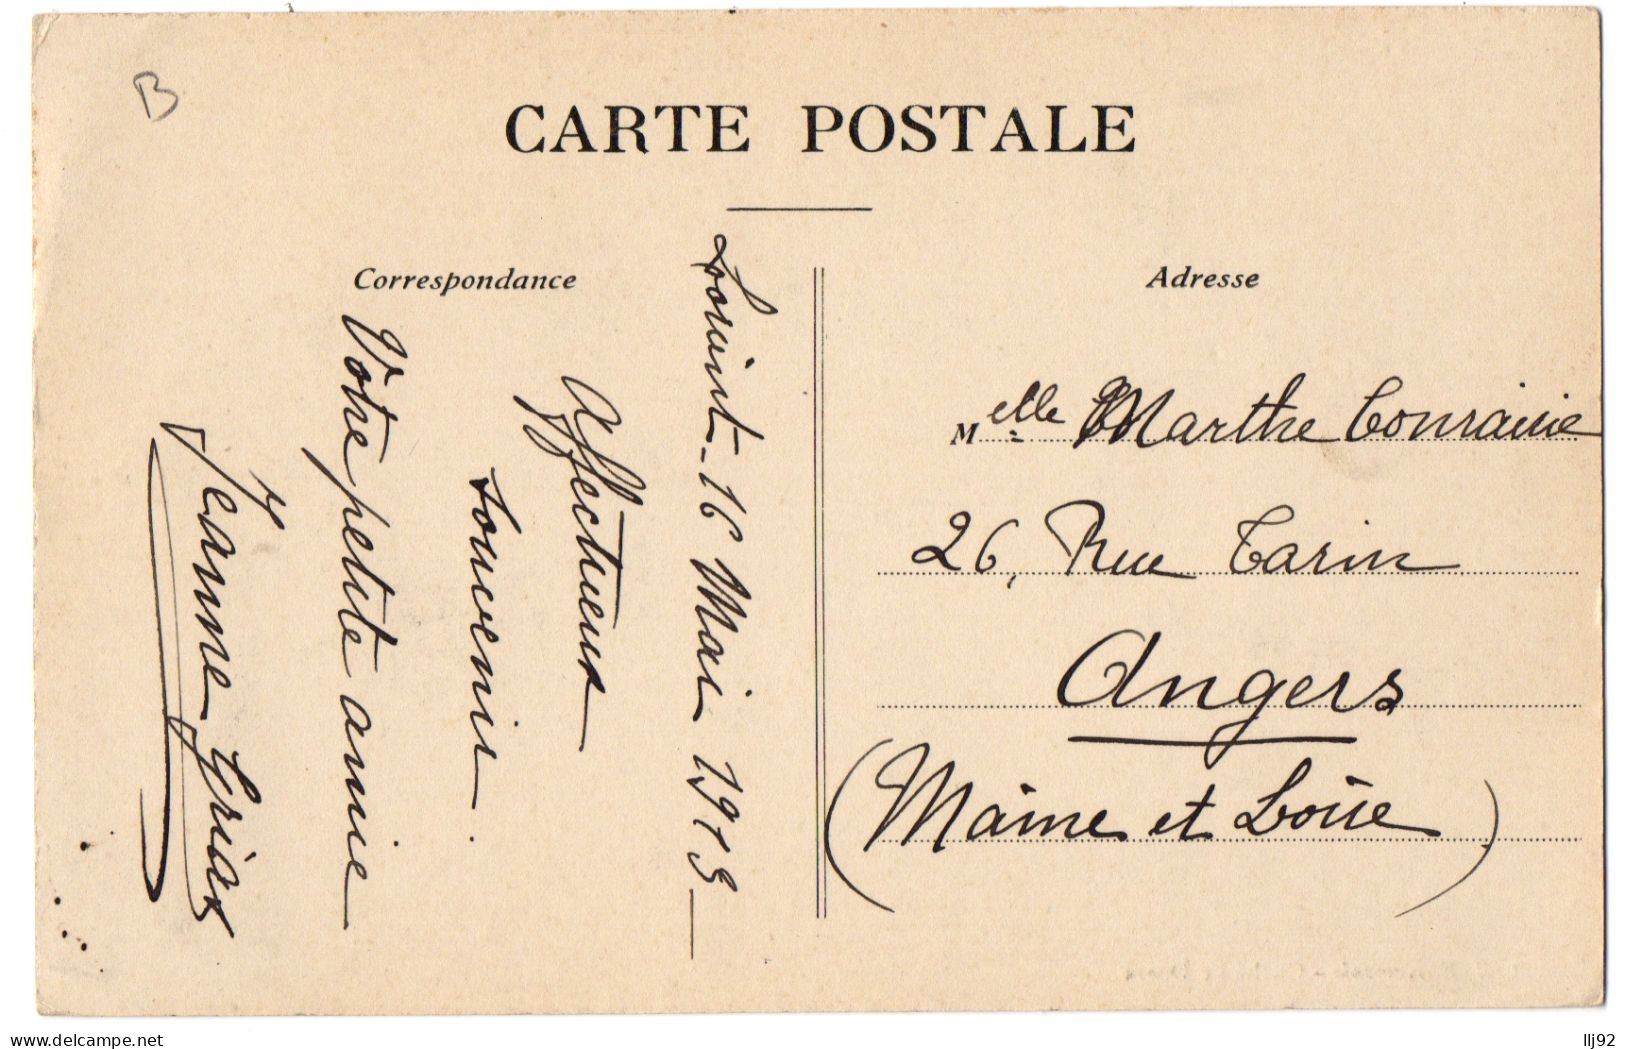 B
CARTE POSTALE
Correspondance
Adresse
16 Mai 1915
Affectueux
souvenir.
Votre petite amie
Jeanne
Melle Marthe Touraine
26, Rue Tarin
Angers
(Maine et Loire)
www.delcampe.net
llj92